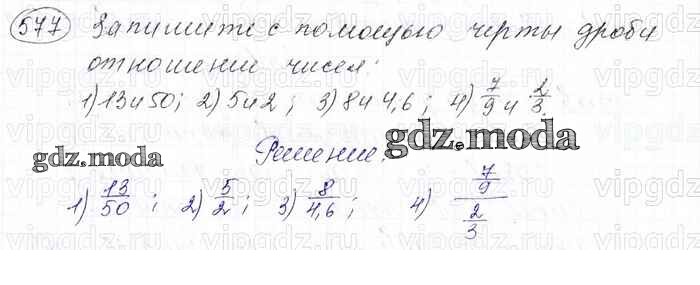 577 Запишите с помощью черты дроби
отношение чисел:
1) 13 и 50; 2) 5 и 2; 3) 8 и 4,6; 4) 7/9 и 2/3.
gdz.moda
gdz.moda
Решение:
1) 13/50; 2) 5/2; 3) 8/4,6; 4) 7/9 / 2/3
vipgdz vipgdz vipgdz vipgdz vipgdz